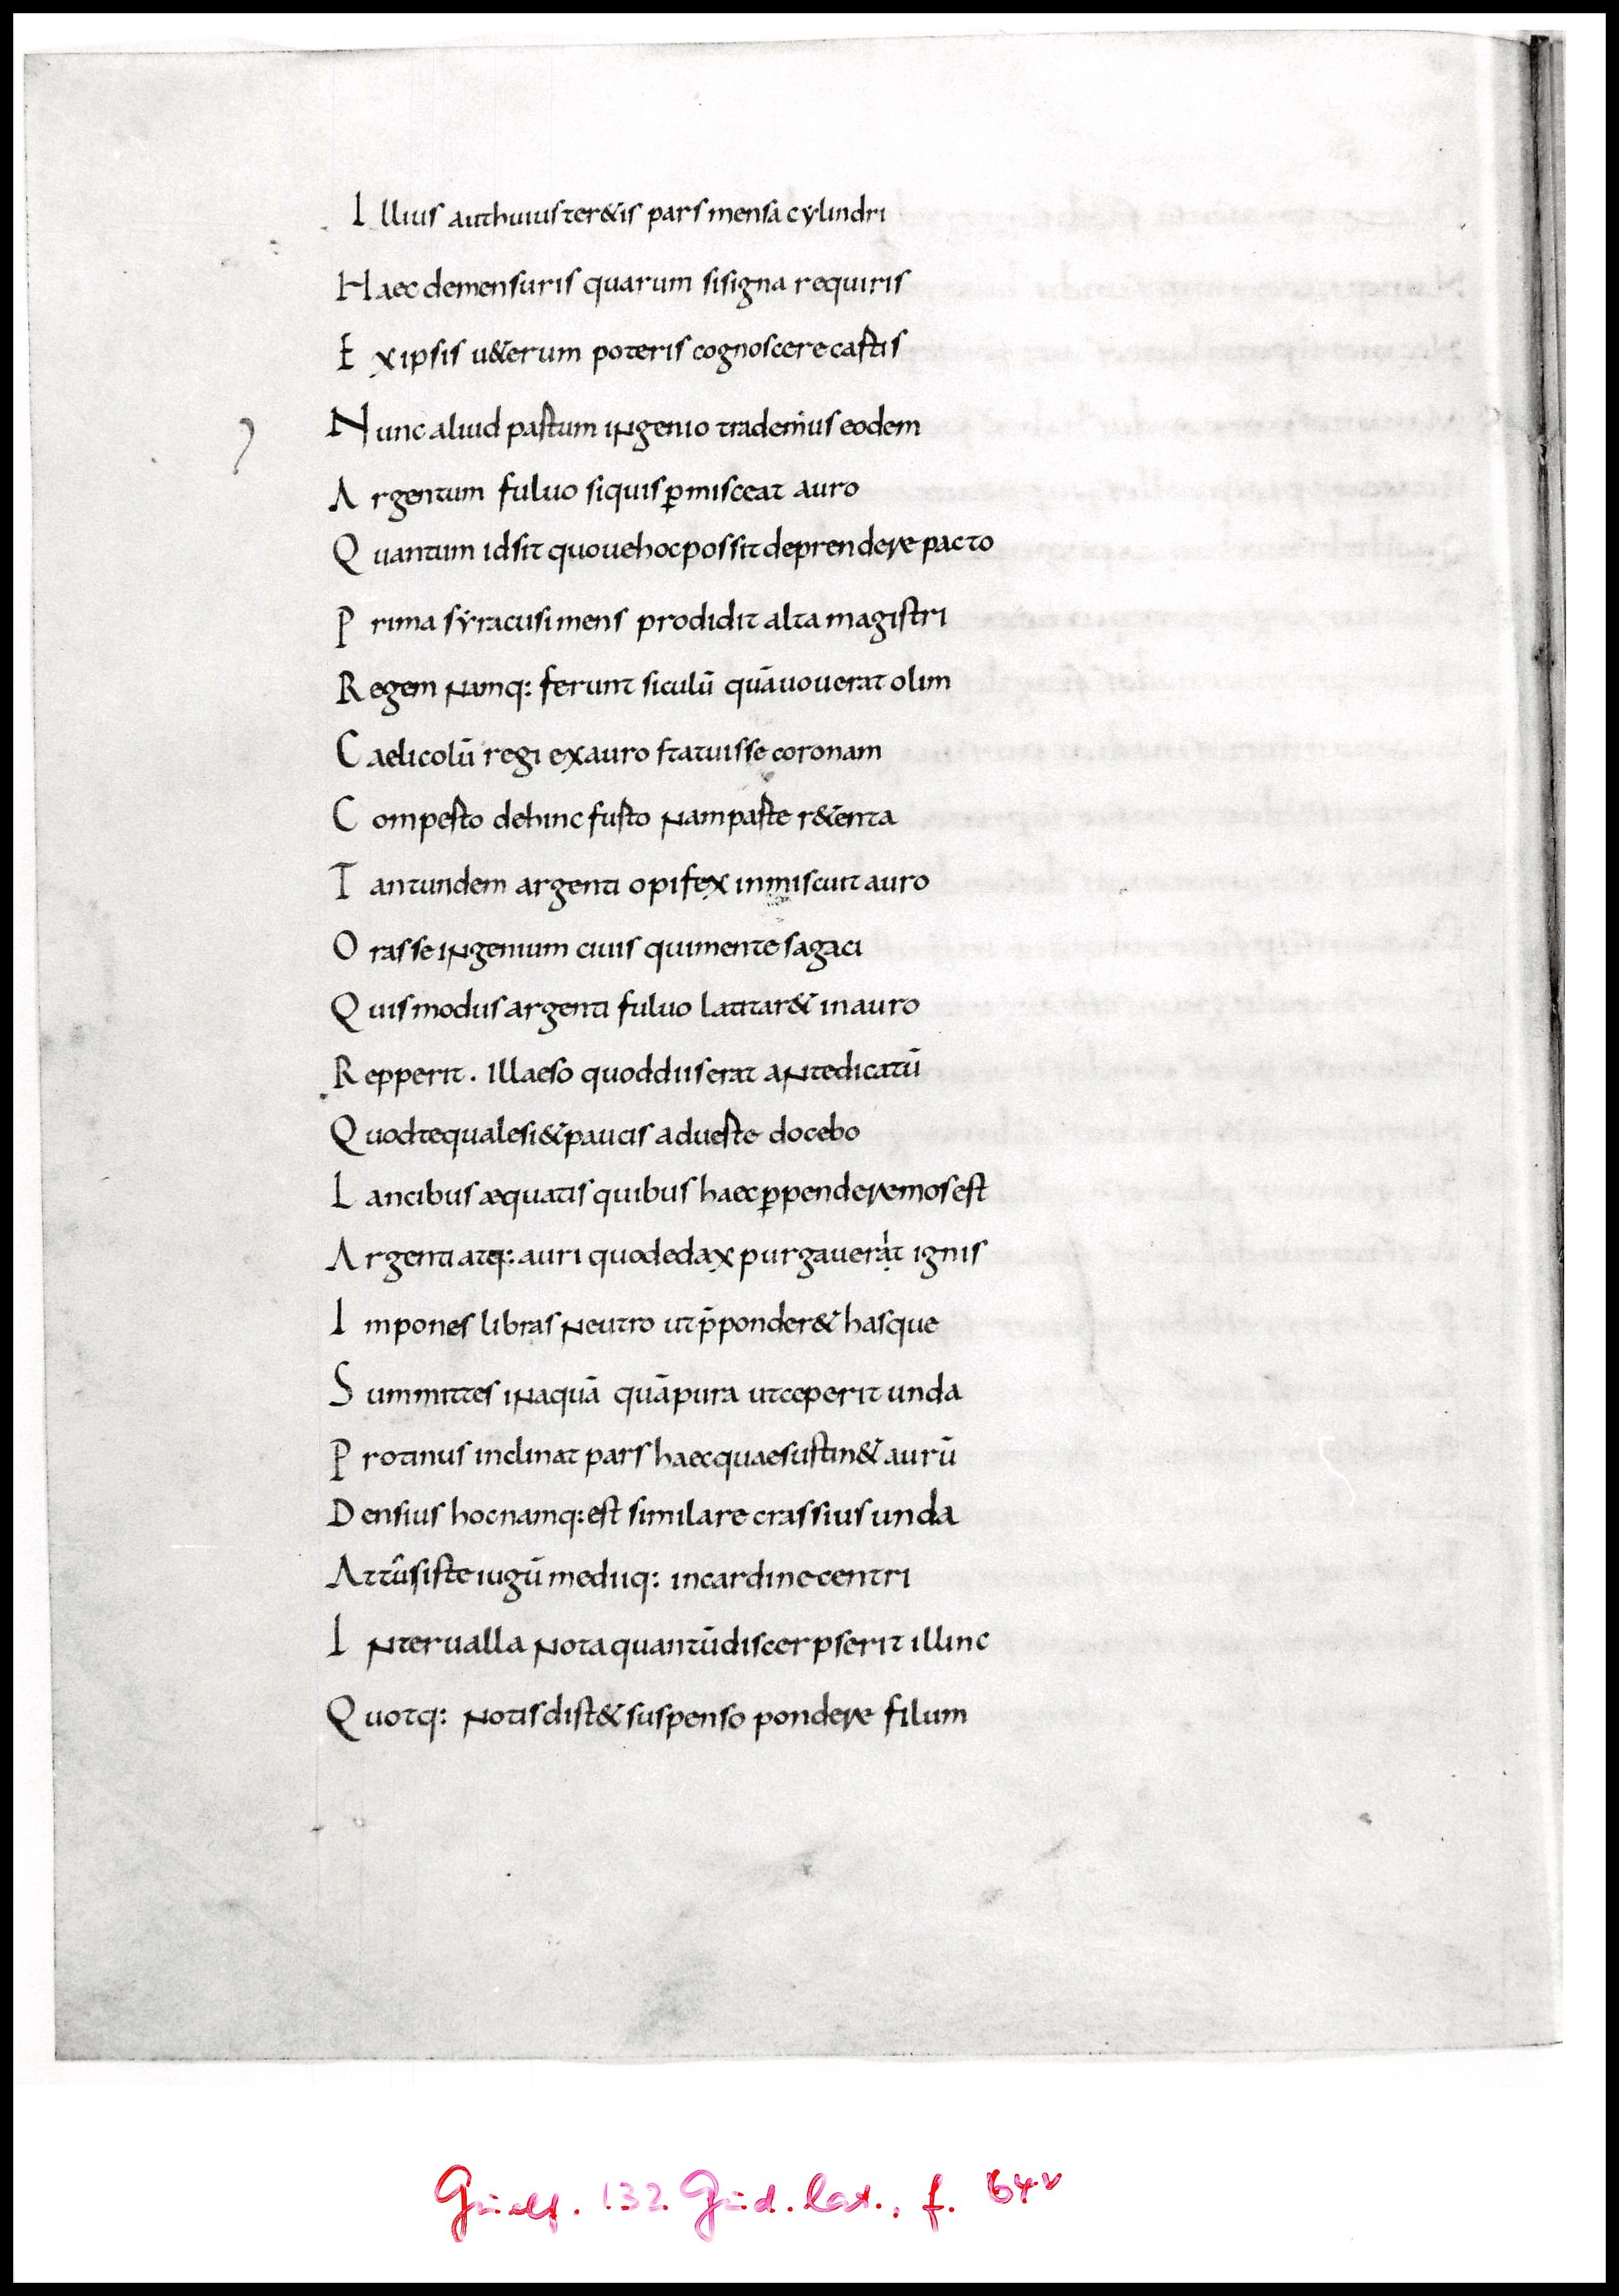 Illius aut huius ter&is pars mensa cylindri
Haec demensuris quarum sisigna requiris
Ex ipsis u&erum poteris cognoscere castis
Nunc aliud pastum ingenio trademus eodem
Argentum fuluo siquis ꝑmisceat auro
Quantum idsit quouehoc possit deprendere pacto
Prima syracusi mens prodidit alta magistri
Regem namq: ferunt siculū quāuouerat olim
Caelicolū regi exauro statuisse coronam
Compesto dehinc fusto nampaste r&enta
Tantundem argenti opifex inmiscuit auro
Orasse ingenium ciuis quimente sagaci
Quis modus argenti fuluo latitar& inauro
Repperit. Illaeso quoddiis erat antedicatū
Quodtequalesi& paucis adueste docebo
Lancibus æquatis quibus haec ꝑpendere mos est
Argenti atq: auri quodedax purgauerat ignis
Impones libras neutro ut p̄ponder& hasque
Summittes inaquā quāpura utceperit unda
Protinus inclinat pars haec quae sustin& aurū
Densius hoc namq: est similare crassius unda
Attū siste iugū mediiq: incardine centri
Interualla nota quantū discerpserit illinc
Quotq: notis dist& suspenso pondere filum
Guelf. 132. Gud. lat., f. 64v